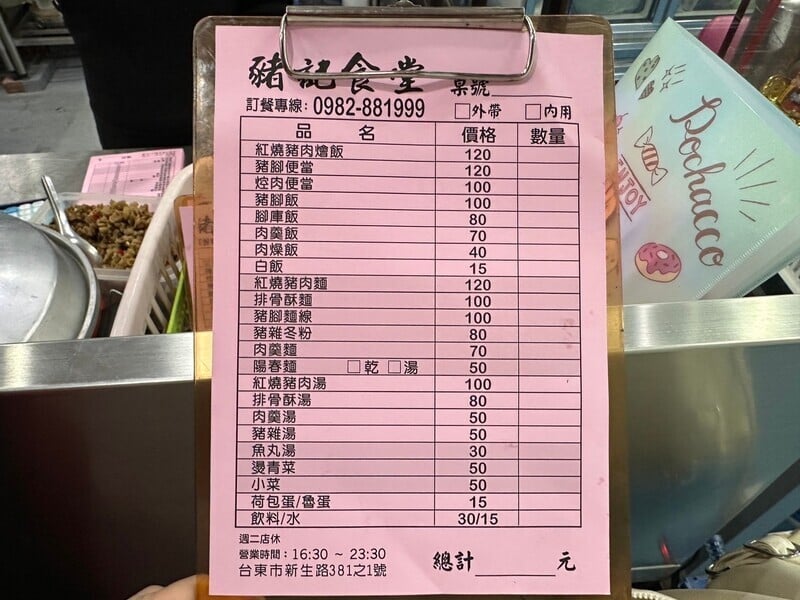 豬記食堂 桌號
訂餐專線: 0982-881999 □外帶 □內用
品 名 價格 數量
紅燒豬肉燴飯 120
豬腳便當 120
焢肉便當 100
豬腳飯 100
腳庫飯 80
肉羹飯 70
肉燥飯 40
白飯 15
紅燒豬肉麵 120
排骨酥麵 100
豬腳麵線 100
豬雜冬粉 80
肉羹麵 70
陽春麵 □乾 □湯 50
紅燒豬肉湯 100
排骨酥湯 80
肉羹湯 50
豬雜湯 50
魚丸湯 30
燙青菜 50
小菜 50
荷包蛋/魯蛋 15
飲料/水 30/15
週二店休
營業時間：16:30 ~ 23:30
台東市新生路381之1號
總計 元
Pochacco
ENJOY